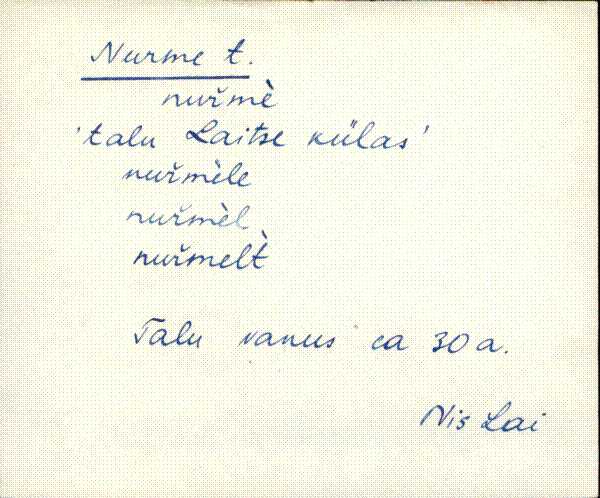 Nurme t.
nuřmè
'talu Laitse külas'
nuřmèle
nuřmèl
nuřmel̀t
Talu vanus ca 30 a.
Nis Lai